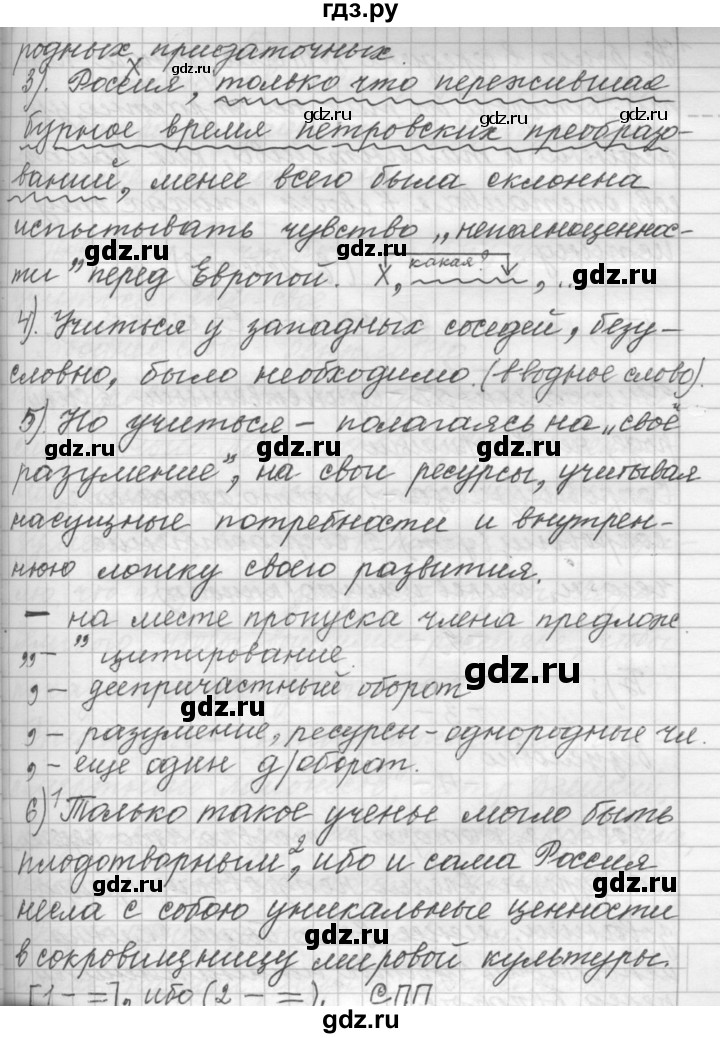 гдз.ру
родных придаточных.
gdz.ru gdz.ru
3). Россия, только что пережившая
gdz.ru gdz.ru
бурное время петровских преобразо-
ваний, менее всего была склонна
испытывать чувство „неполноценнос-
gdz.ru gdz.ru gdz.ru
ти” перед Европой. X, какая? , ..
4). Учиться у западных соседей, безу-
словно, было необходимо. (вводное слово).
5). Но учиться – полагаясь на „своё
gdz.ru gdz.ru gdz.ru
разумение”, на свои ресурсы, учитывая
насущные потребности и внутрен-
нюю логику своего развития.
– на месте пропуска члена предлож
„ – ” цитирование.
gdz.ru gdz.ru
, – деепричастный оборот
, – разумение, ресурсы – однородные чл.
gdz.ru
, – еще один д/оборот.
6) ¹Только такое ученье могло быть
плодотворным, ²ибо и сама Россия
gdz.ru gdz.ru
несла с собою уникальные ценности
gdz.ru
в сокровищницу мировой культуры.
[1 – =], ибо (2 – =). СПП
gdz.ru